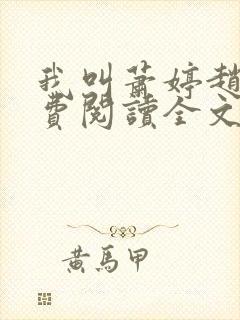 我叫蕭婷趙
費閱讀全文
黃馬甲